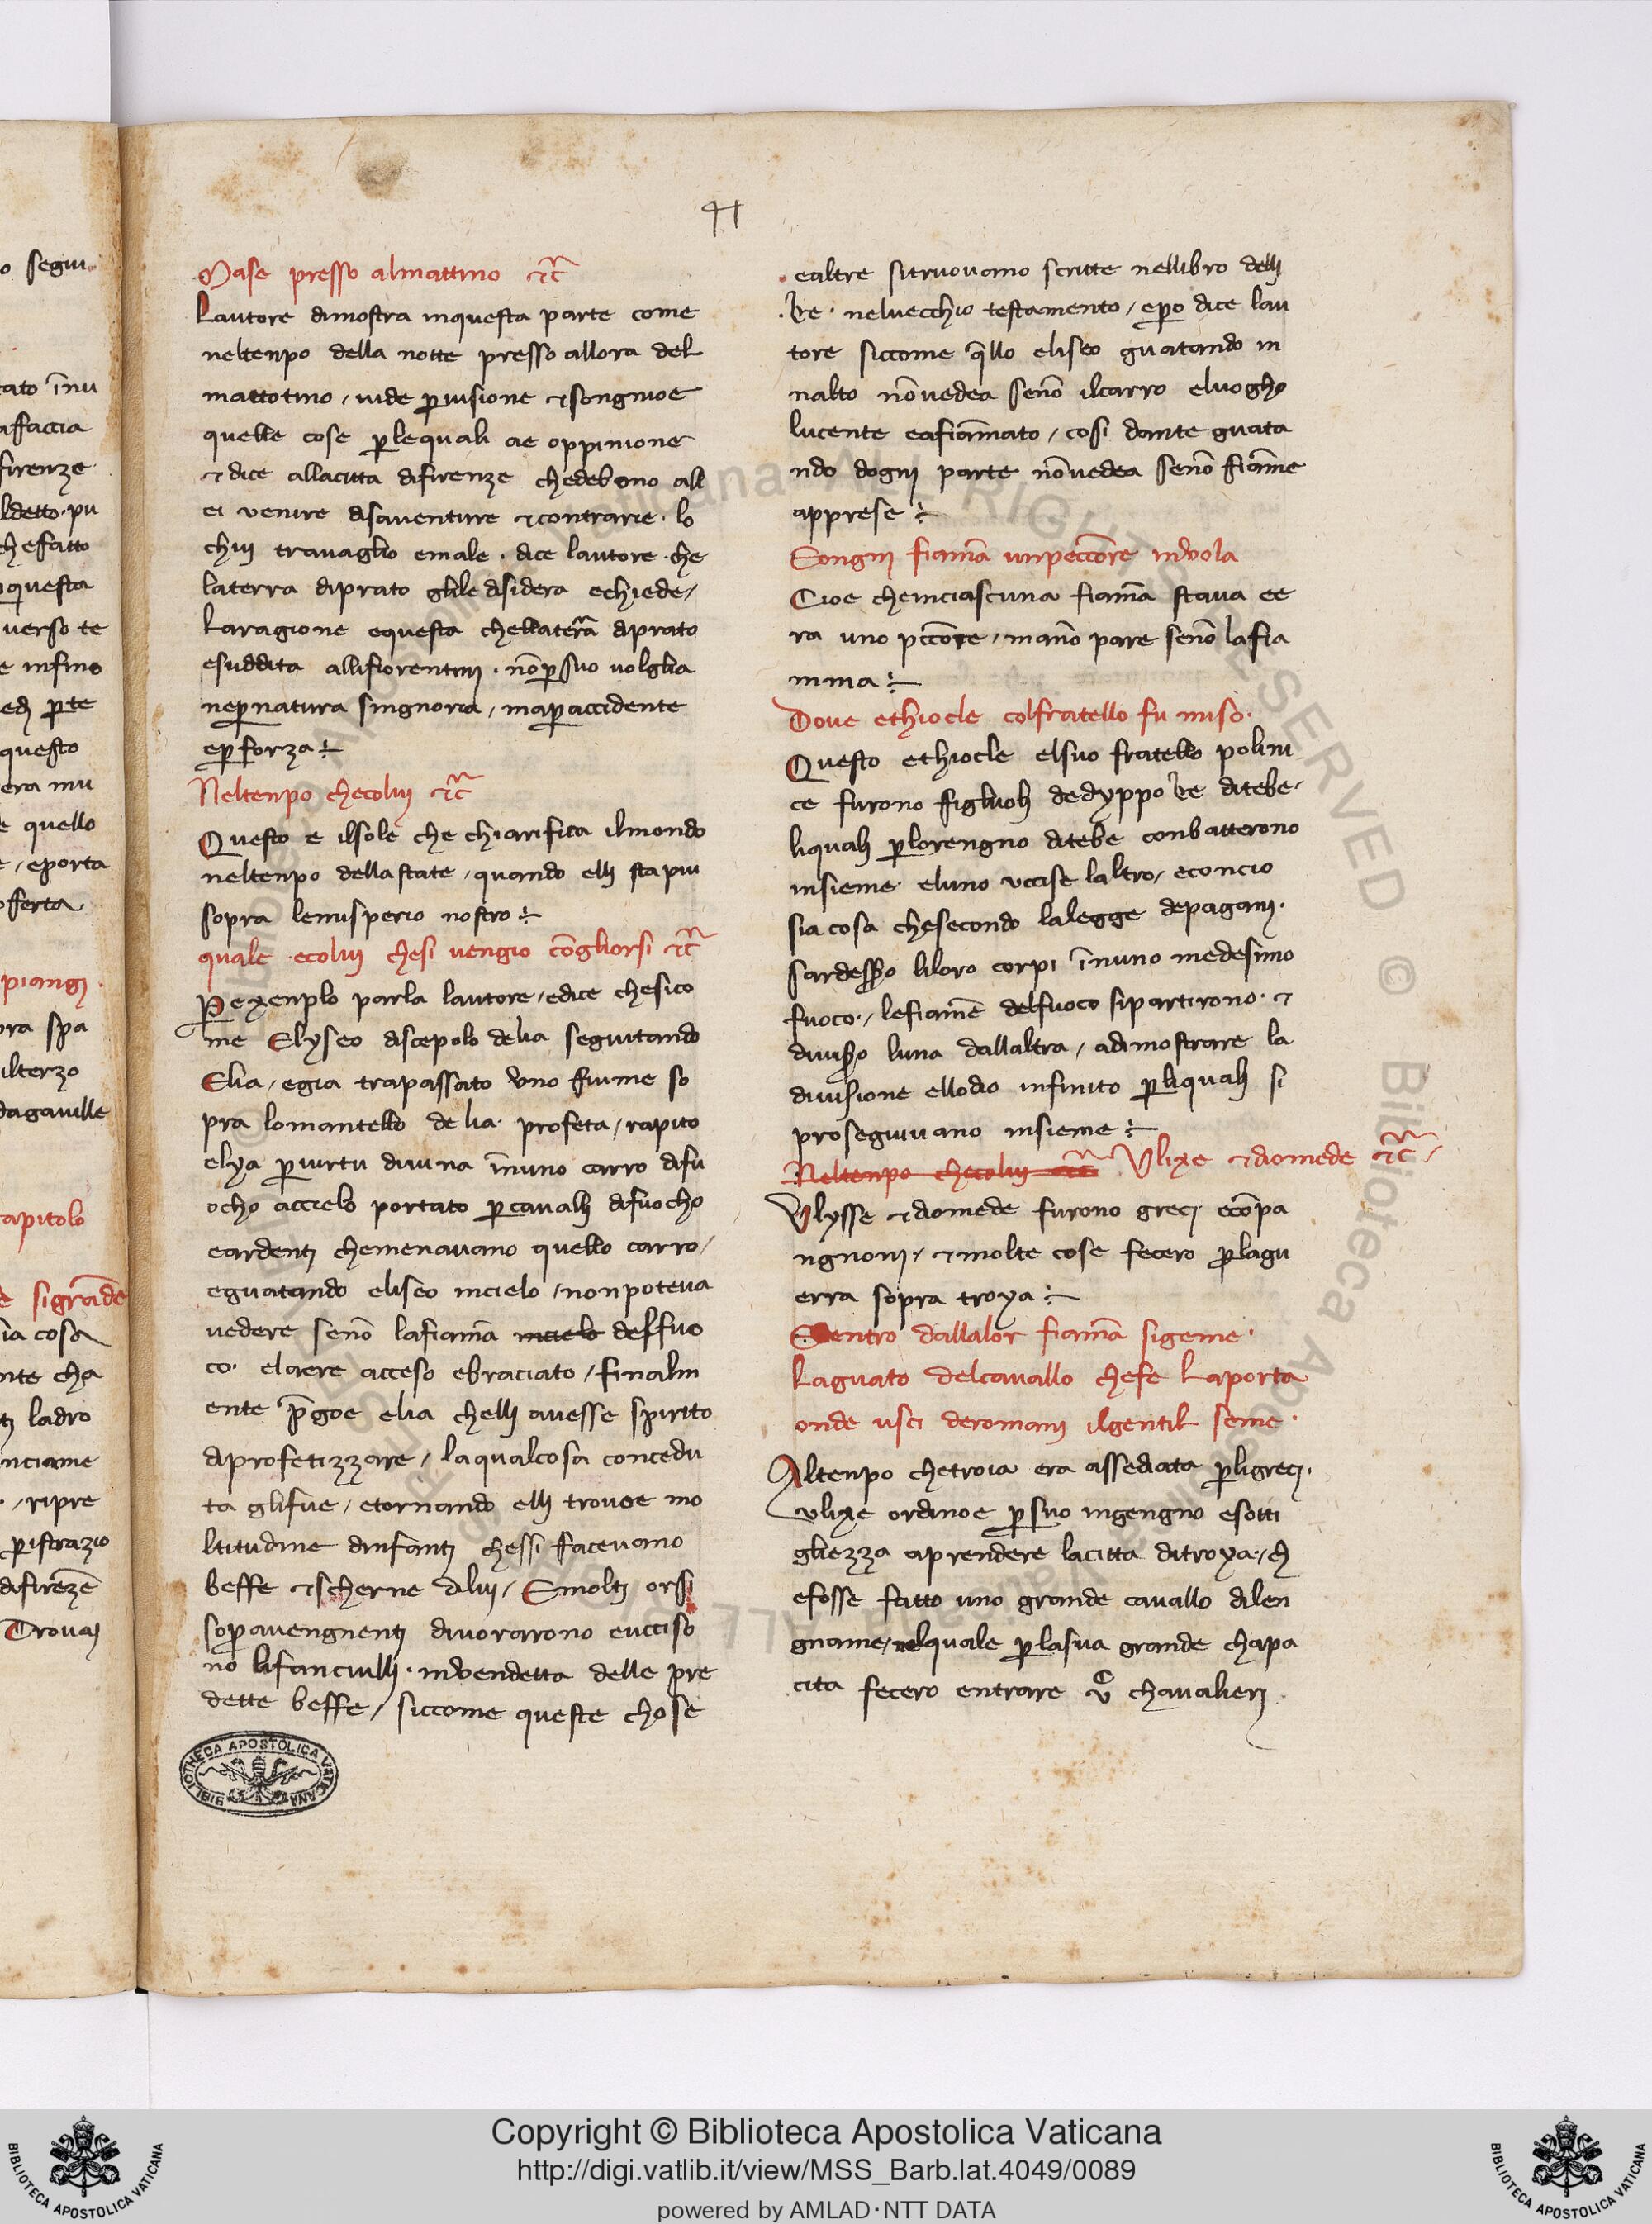 41
Mase presso almattino ⁊c̃
Lautore dimostra inquesta parte come
neltenpo della notte presso allora del
mattotino / uide ꝑuisione ⁊songnioe
quelle cose ꝑlequali ae oppinione
⁊dice allacitta difirenze chedebono all
ei venire disauenture ⁊contrarie · lo
chui trauaglio emale · dice lautore · che
laterra diprato glile disidera echiede /
Laragione equesta chellaterã diprato
esuddita allifiorentini · nõꝑsuo uolglia
neꝑnatura singnoria / maꝑaccidente
eꝑforza ÷
Neltenpo checolui ⁊c̃
Questo e ilsole che chiarifica ilmondo
neltenpo dellastate / quando elli stapiu
sopra lemisperio nostro ÷
quale ecolui chesi uengio cõgliorsi ⁊c̃
Ꝑexenplo parla lautore / edice chesico
me Elyseo discepolo delia seguitando
Elia / egia trapassato vno fiume so
pra lomantello delia · profeta / rapito
elya ꝑuirtu diuina ĩnuno carro difu
ocho accielo portato ꝑcaualli difuocho
eardenti chemenauano quello carro /
eguatando eliseo incielo / nonpoteua
uedere senõ lafiamã incielo delfuo
co · elaere acceso ebraciato / finalm
ente p̃goe elia chelli auesse spirito
diprofetizzare / laqualcosa concedu
ta glifue / etornando elli trouoe mo
ltitudine dinfanti chessi faceuano
beffe ⁊scherne dilui / Emolti orsi
soprauengnenti diuorarono eucciso
no lifanciulli · invendetta delle pre
dette beffe / siccome queste chose
ealtre sitruouano scritte nellibro delli
Re · neluecchio testamento / eꝑo dice lau
tore siccome q̃llo eliseo guatando in
nalto nõuedea senõ ilcarro eluogho
lucente eafiammato / cosi dante guata
ndo dogni parte nõuedea senõ fiãme
apprese ÷
Eongni fiamã unpeccõre invola
Cioe cheinciascuna fiamã staua ee
ra uno pccõre / manõ pare senõ lafia
mma ÷
Doue ethiocle colfratello fu miso ·
Questo ethiocle elsuo fratello polini
ce furono figliuoli dedyppo Re ditebe /
liquali ꝑlorengno ditebe conbatterono
insieme · eluno vccise laltro / econcio
sia cosa chesecondo lalegge depagani ·
sardesso liloro corpi ĩnuno medesimo
fuoco · / lefiamẽ delfuoco sipartirono · ⁊
luna dallaltra / adimostrare la
diuisione ellodio infinito ꝑliquali si
proseguiuano insieme ÷
Neltenpo checolui ⁊c̃ Vlixe ⁊diomede ⁊c̃ /
Vlysse ⁊diomede furono greci · ecõpa
ngnoni / ⁊molte cose fecero ꝑlagu
erra sopra troya ÷
Dentro dallalor fiamã sigeme ·
Laguato delcauallo chefe Laporta
onde usci deromani ilgentil seme ·
Altenpo chetroia era assediata ꝑligreci ·
vlixe ordinoe ꝑsuo ingengno esotti
gliezza aprendere lacitta ditroya · / ch
efosse fatto uno grande cauallo dilen
gname / nelquale ꝑlasua grande chapa
cita fecero entrare chaualieri
BIBLIOTHECA APOSTOLICA VATICANA
Copyright © Biblioteca Apostolica Vaticana
http://digi.vatlib.it/view/MSS_Barb.lat.4049/0089
powered by AMLAD·NTT DATA